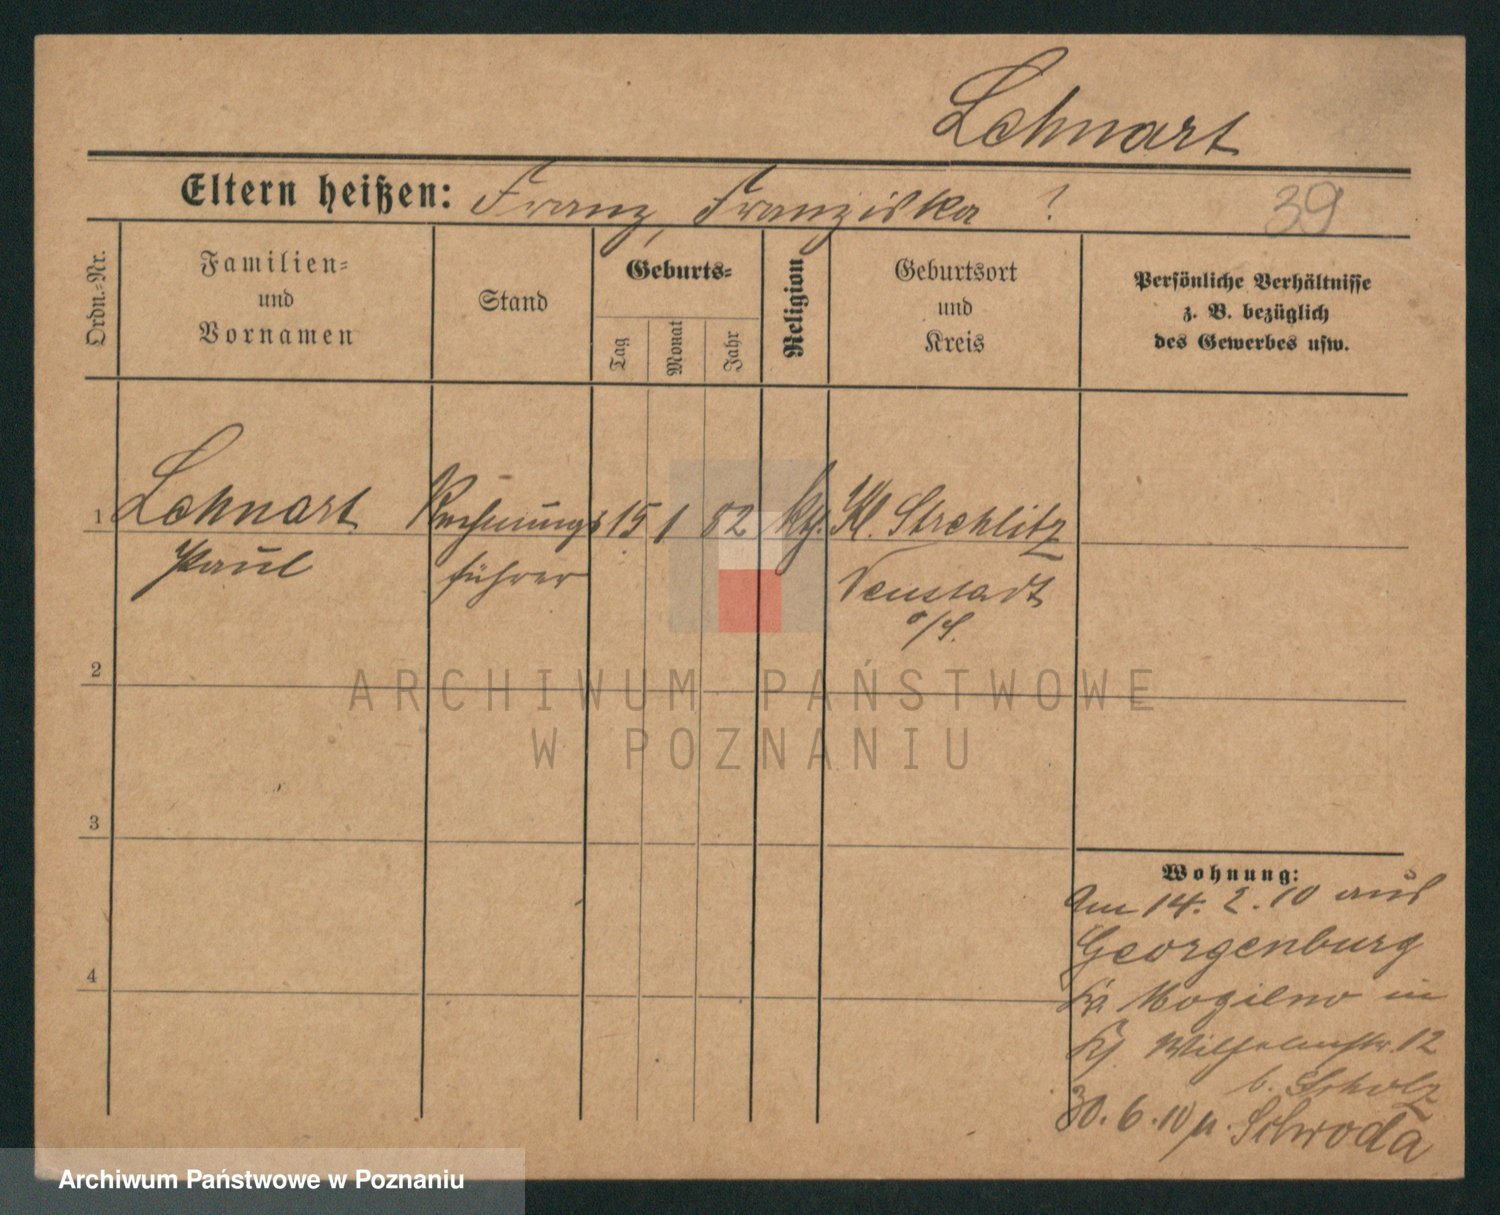 Lehnart
Eltern heißen: Franz, Franziska ?
39
Ordn.-Nr.
Familien-
und
Vornamen
Stand
Geburts-
Tag
Monat
Jahr
Religion
Geburtsort
und
Kreis
Persönliche Verhältnisse
z. B. bezüglich
des Gewerbes usw.
1 Lehnart Rechnungs 15 1 82 kth. Kl. Strehlitz
Paul führer Neustadt
o/S.
2
3
4
Wohnung:
Am 14. 2. 10 aus
Georgenburg
Kr Mogilno in
Wilhelmstr. 12
b. Scholz
30. 6. 10 n. Schroda
ARCHIWUM PAŃSTWOWE
W POZNANIU
Archiwum Państwowe w Poznaniu